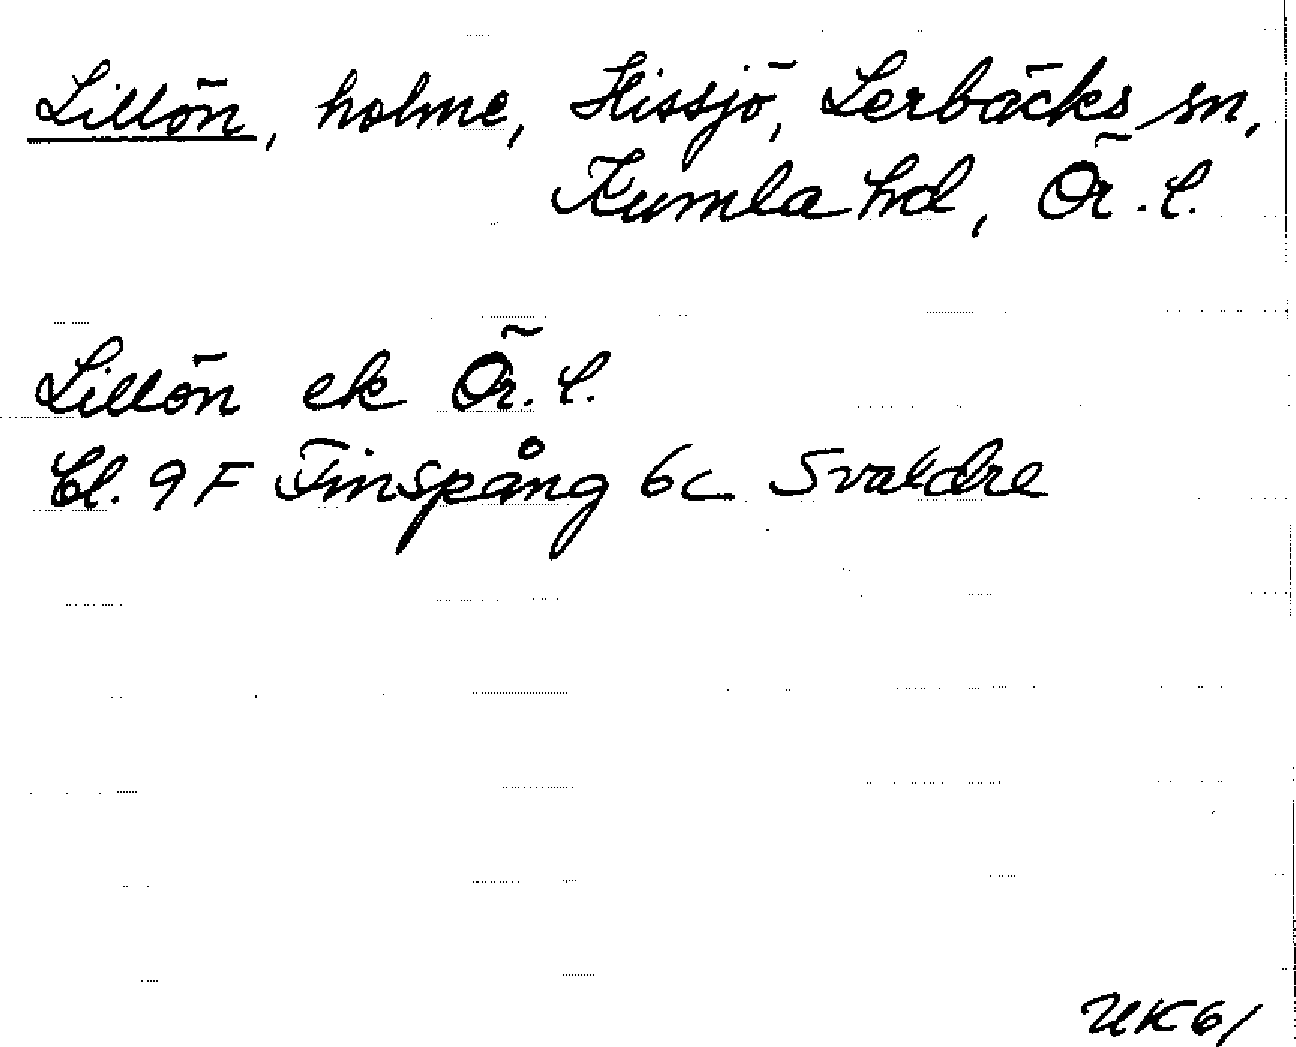 Lillön, holme, Hissjö, Lerbäcks sn,
Kumla hd, Ör. l.
Lillön ek Ör. l.
Bl. 9 F Finspång 6c Svaldre
UK61